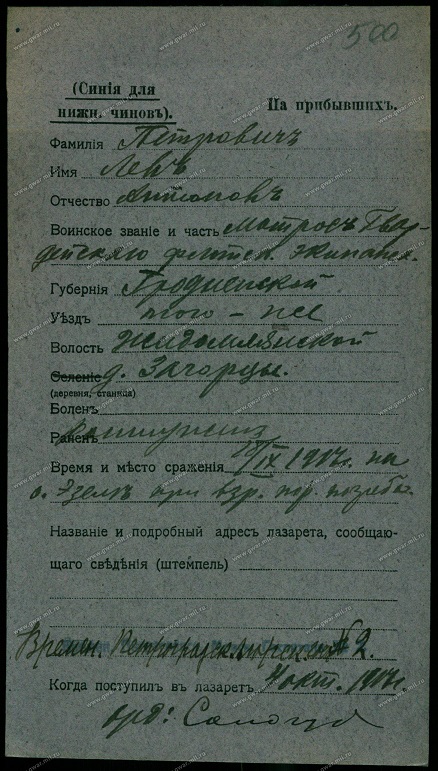 500
(Синія для
нижн. чиновъ).
На прибывшихъ.
Фамилія Петровичъ
Имя Левъ
Отчество Антоновъ
Воинское званіе и часть Матросъ Гвар-
дейскаго флотск. экипажа.
Губернія Гродненской
Уѣздъ того-же
Волость Жидомлянской
Селеніе д. Загорцы.
(деревня, станица)
Боленъ
Раненъ контуженъ
Время и мѣсто сраженія /IX 1917г. на
о. Эзелѣ при взр. пор. погреба.
Названіе и подробный адресъ лазарета, сообщаю-
щаго свѣдѣнія (штемпель)
Времен. Петроградск. №2.
Когда поступилъ въ лазаретъ 4 окт. 1917г.
www.gwar.mil.ru